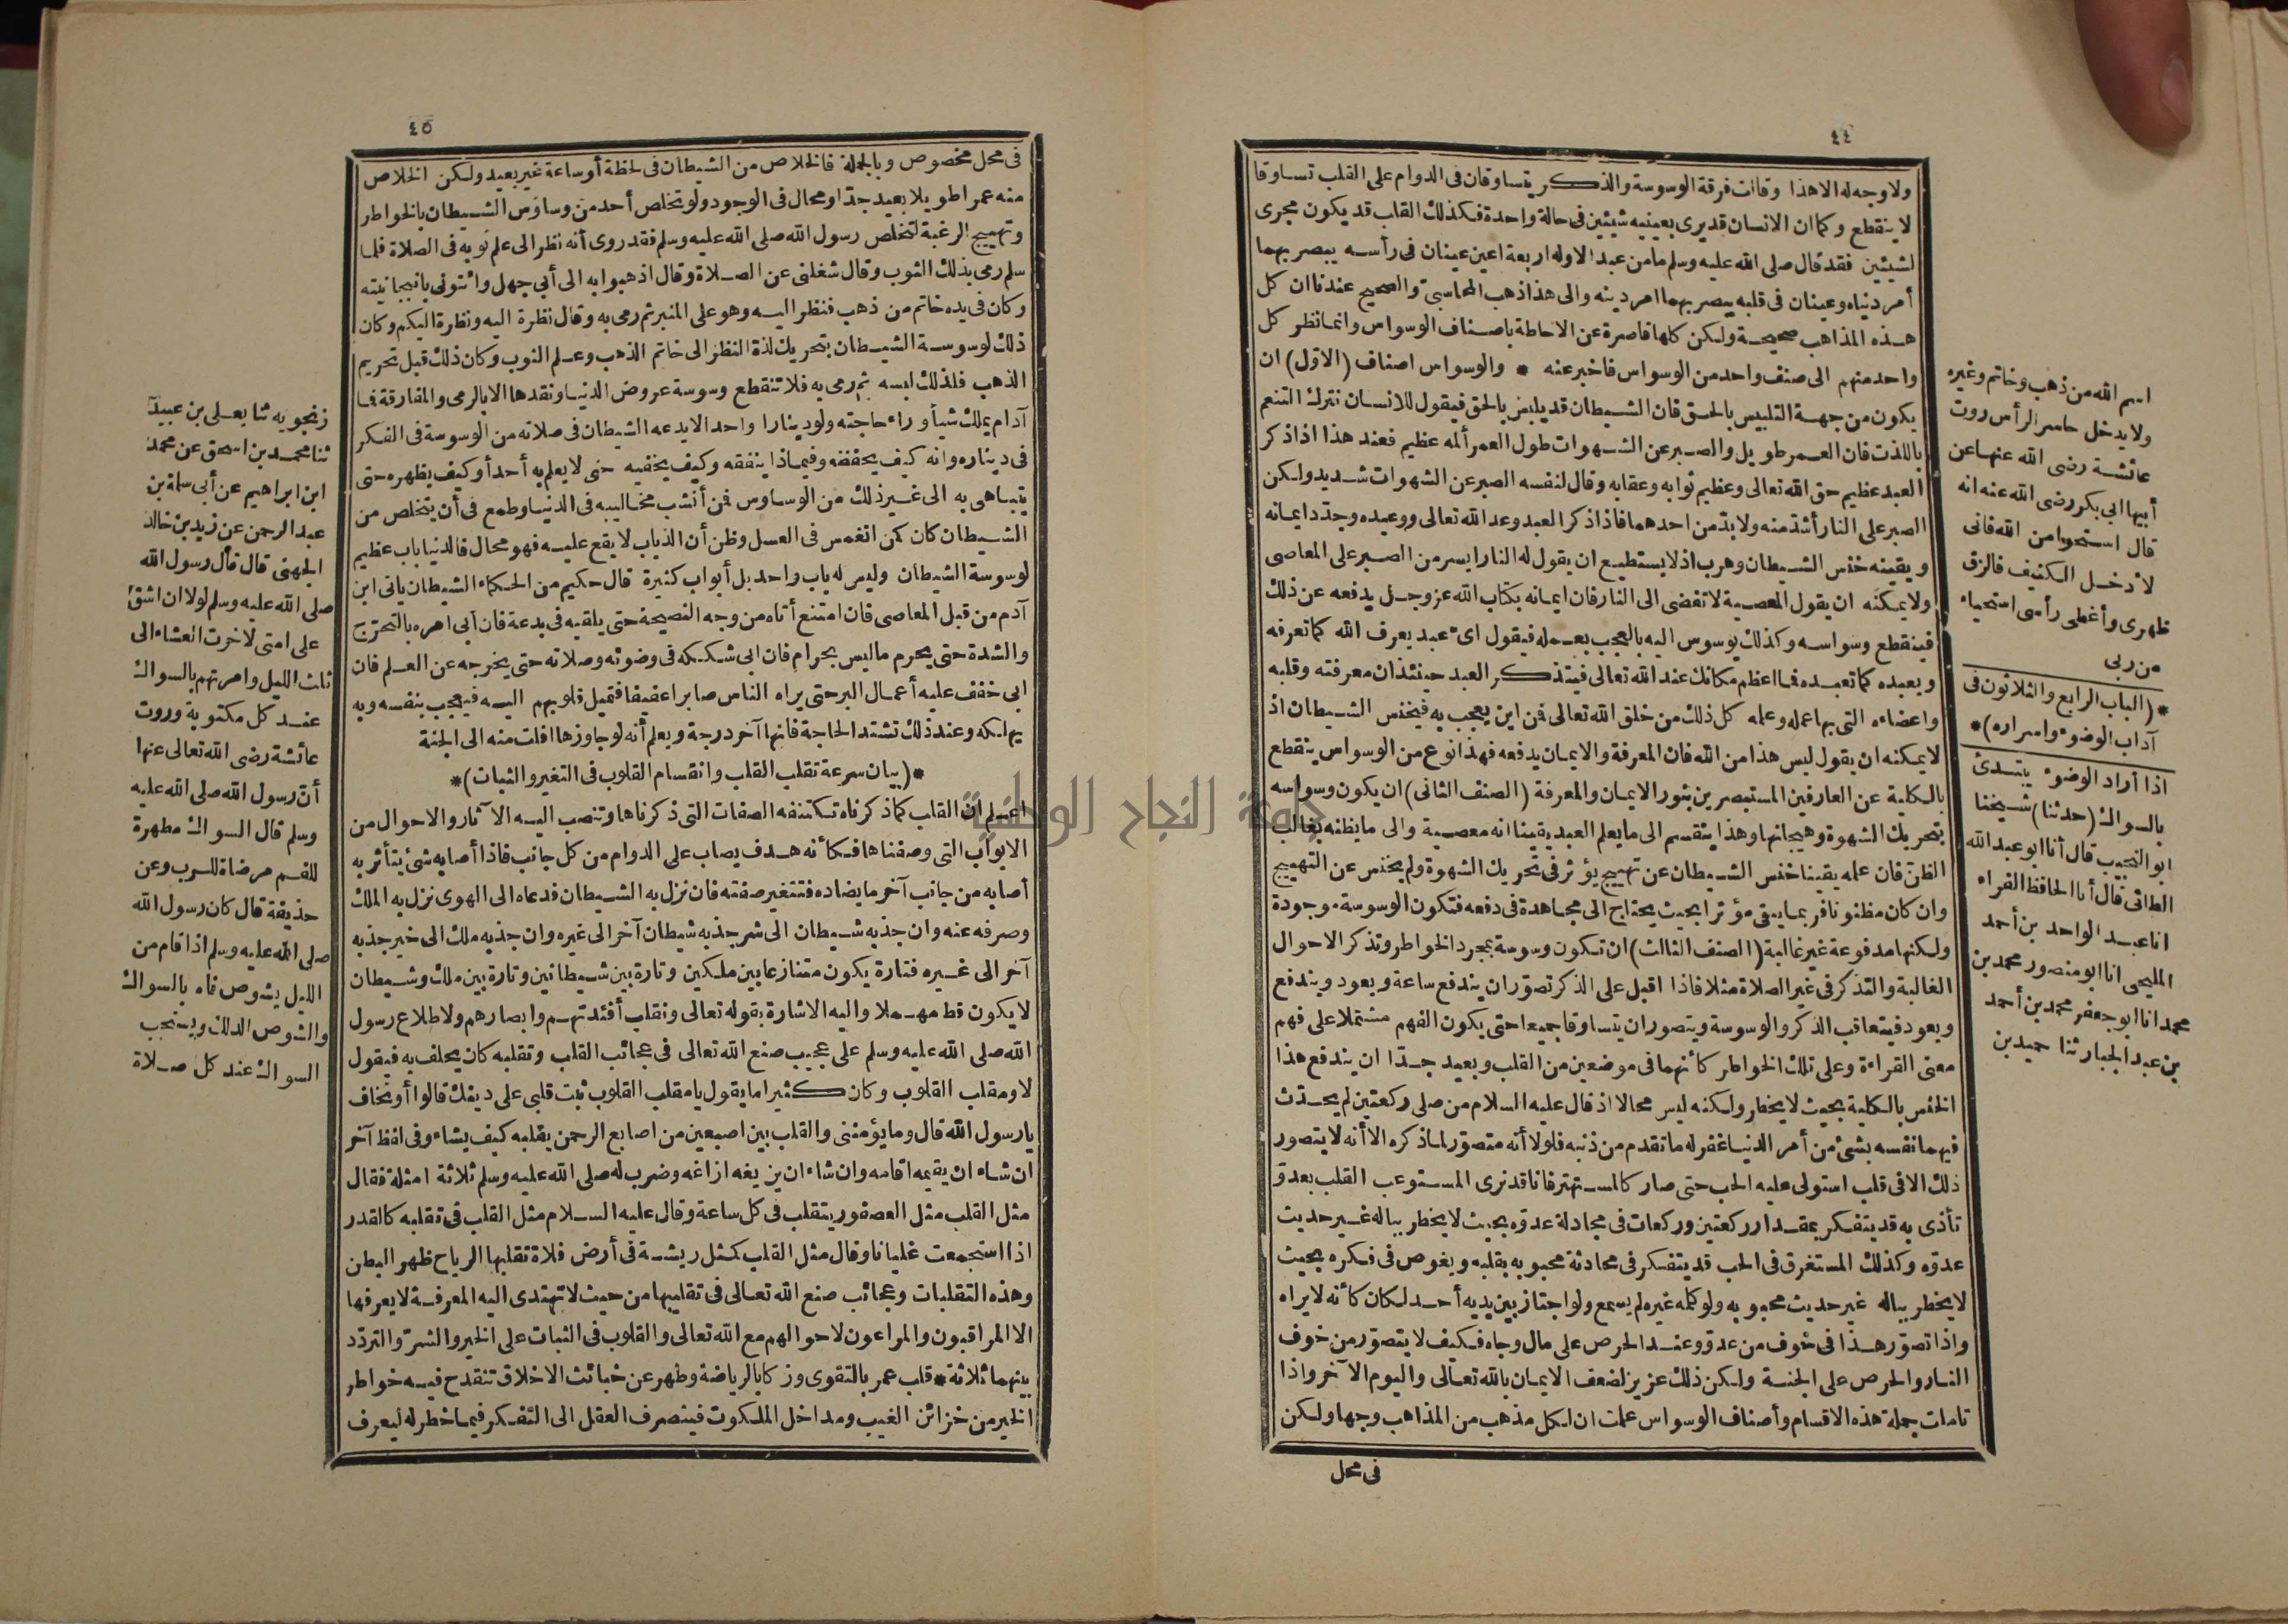 ٤٤
ولا وجه له الا هذا وقالت فرقة الوسوسة والذكر يتساوقان في الدوام على القلب تساوقا
لا ينقطع وكما ان الانسان قد يرى بعينيه شيئين في حالة واحدة فكذلك القلب قد يكون مجرى
لشيئين فقد قال صلى الله عليه وسلم ما من عبد الا وله اربعة اعين عينان في رأسه يبصر بهما
أمر دنياه وعينان في قلبه يبصر بهما امر دينه والى هذا ذهب المحاسبي والصحيح عندنا ان كل
هذه المذاهب صحيحة ولكن كلها قاصرة عن الاحاطة باصناف الوسواس وانما نظر كل
واحد منهم الى صنف واحد من الوسواس فاخبر عنه * والوسواس اصناف (الاول) ان
يكون من جهة التلبيس بالحق فان الشيطان قد يلبس بالحق فيقول للانسان تترك التنعم
باللذت فان العمر طويل والصبر عن الشهوات طول العمر ألمه عظيم فعند هذا اذا ذكر
العبد عظيم حق الله تعالى وعظيم ثوابه وعقابه وقال لنفسه الصبر عن الشهوات شديد ولكن
الصبر على النار أشد منه ولا بد من احدهما فاذا ذكر العبد وعد الله تعالى ووعيده وجدد ايمانه
ويقينه خنس الشيطان وهرب اذ لا يستطيع ان يقول له النار ايسر من الصبر على المعاصي
ولا يمكنه ان يقول المعصية لا تفضى الى النار فان ايمانه بكتاب الله عز وجل يدفعه عن ذلك
فينقطع وسواسه وكذلك يوسوس اليه بالعجب بعمله فيقول أى عبد يعرف الله كما تعرفه
ويعبده كما تعبده فما اعظم مكانك عند الله تعالى فيتذكر العبد حينئذ ان معرفته وقلبه
واعضاءه التى بها عمله وعلمه كل ذلك من خلق الله تعالى فمن اين يعجب به فيخنس الشيطان اذ
لا يمكنه ان يقول ليس هذا من الله فان المعرفة والايمان يدفعه فهذا نوع من الوسواس ينقطع
بالكلية عن العارفين المستبصرين بنور الايمان والمعرفة (الصنف الثانى) ان يكون وسواسه
بتحريك الشهوة وهيجانها وهذا ينقسم الى ما يعلم العبد يقينا انه معصية والى ما يظنه بغالب
الظن فان علمه يقينا خنس الشيطان عن تهييج يؤثر فى تحريك الشهوة ولم يخنس عن التهييج
وان كان مظنونا فربما يبقى مؤثرا بحيث يحتاج الى مجاهدة فى دفعه فتكون الوسوسة موجودة
ولكنها مدفوعة غير غالبة (الصنف الثالث) ان تكون وسوسة بمجرد الخواطر وتذكر الاحوال
الغالبة والتذكر فى غير الصلاة مثلا فاذا اقبل على الذكر تصوّر ان يندفع ساعة ويعود ويندفع
ويعود فيتعاقب الذكر والوسوسة ويتصور ان يتساوقا جميعا حتى يكون الفهم مشتملا على فهم
معنى القراءة وعلى تلك الخواطر كأنهما فى موضعين من القلب وبعيد جدّا ان يندفع هذا
الخنس بالكلية بحيث لا يخطر ولكنه ليس محالا اذ قال عليه السلام من صلى ركعتين لم يحدّث
فيهما نفسه بشئ من أمر الدنيا غفر له ما تقدم من ذنبه فلولا أنه متصوّر لما ذكره الا أنه لا يتصور
ذلك الا فى قلب استولى عليه الحب حتى صار كالمستهتر فانا قد نرى المستوعب القلب بعدوّ
تأذى به قد يتفكر بمقدار ركعتين وركعات فى مجادلة عدوّه بحيث لا يخطر بباله غير حديث
عدوّه وكذلك المستغرق فى الحب قد يتفكر فى محادثة محبوبه بقلبه ويغوص فى فكره بحيث
لا يخطر بباله غير حديث محبوبه ولو كلمه غيره لم يسمع ولو اجتاز بين يديه أحد لكان كأنه لا يراه
واذا تصوّر هذا فى خوف من عدو وعند الحرص على مال وجاه فكيف لا يتصوّر من خوف
النار والحرص على الجنة ولكن ذلك عزيز لضعف الايمان بالله تعالى واليوم الآخر واذا
تاملت جملة هذه الاقسام وأصناف الوسواس علمت ان لكل مذهب من المذاهب وجها ولكن
فى محل
اسم الله من ذهب وخاتم وغيره
ولا يدخل حاسر الرأس روت
عائشة رضى الله عنها عن
أبيها ابى بكر رضى الله عنه انه
قال استحيوا من الله فانى
لا دخل الكنيف فالزق
ظهرى وأغطى رأسى استحياء
من ربى
*(الباب الرابع والثلاثون فى
آداب الوضوء واسراره)*
اذا أراد الوضوء يبتدئ
بالسواك (حدثنا) شيخنا
ابو النجيب قال أنا ابو عبد الله
الطائى قال أنا الحافظ الفراء
انا عبد الواحد بن أحمد
المليحى انا ابو منصور محمد بن
محمد انا ابو جعفر محمد بن أحمد
بن عبد الجبار ثنا حميد بن
٤٥
فى محل مخصوص وبالجملة فالخلاص من الشيطان فى لحظة أو ساعة غير بعيد ولكن الخلاص
منه عمرا طويلا بعيد جدّا ومحال فى الوجود ولو تخلص أحد من وساوس الشيطان بالخواطر
وتهييج الرغبة لتخلص رسول الله صلى الله عليه وسلم فقد روى أنه نظر الى علم ثوبه فى الصلاة فلما
سلم رمى بذلك الثوب وقال شغلنى عن الصلاة وقال اذهبوا به الى أبى جهل وائتونى بانبجانيته
وكان فى يده خاتم من ذهب فنظر اليه وهو على المنبر ثم رمى به وقال نظرة اليه ونظرة اليكم وكان
ذلك لوسوسة الشيطان بتحريك لذة النظر الى خاتم الذهب وعلم الثوب وكان ذلك قبل تحريم
الذهب فلذلك لبسه ثم رمى به فلا تنقطع وسوسة عروض الدنيا ونقدها الا بالرمى والمفارقة فما
آدام يملك شيأ وراء حاجته ولو دينارا واحد الا يدعه الشيطان فى صلاته من الوسوسة فى الفكر
فى ديناره وانه كيف يحفظه وفيماذا ينفقه وكيف يخفيه حتى لا يعلم به أحد أو كيف يظهره حتى
يتباهى به الى غير ذلك من الوساوس فمن أنشب مخاليبه فى الدنيا وطمع فى أن يتخلص من
الشيطان كان كمن انغمس فى العسل وظن أن الذباب لا يقع عليه فهو محال فالدنيا باب عظيم
لوسوسة الشيطان وليس له باب واحد بل أبواب كثيرة قال حكيم من الحكماء الشيطان ياتى ابن
آدم من قبل المعاصى فان امتنع أتاه من وجه النصيحة حتى يلقيه فى بدعة فان أبى امره بالتحرّج
والشدة حتى يحرم ما ليس بحرام فان ابى شككه فى وضوئه وصلاته حتى يخرجه عن العلم فان
ابى خفف عليه أعمال البر حتى يراه الناس صابرا عفيفا فتميل قلوبهم اليه فيعجب بنفسه وبه
يهلكه وعند ذلك تشتد الحاجة فانها آخر درجة ويعلم أنه لو جاوزها افلت منه الى الجنة
*(بيان سرعة تقلب القلب وانقسام القلوب فى التغير والثبات)*
اعلم ان القلب كما ذكرناه تكتنفه الصفات التى ذكرناها وتنصب اليه الآثار والاحوال من
الابواب التى وصفناها فكأنه هدف يصاب على الدوام من كل جانب فاذا أصابه شئ يتأثر به
أصابه من جانب آخر ما يضاده فتتغير صفته فان نزل به الشيطان فدعاه الى الهوى نزل به الملك
وصرفه عنه وان جذبه شيطان الى شر جذبه شيطان آخر الى غيره وان جذبه ملك الى خير جذبه
آخر الى غيره فتارة يكون متنازعا بين ملكين وتارة بين شيطانين وتارة بين ملك وشيطان
لا يكون قط مهملا واليه الاشارة بقوله تعالى ونقلب أفئدتهم وابصارهم ولاطلاع رسول
الله صلى الله عليه وسلم على عجيب صنع الله تعالى فى عجائب القلب وتقلبه كان يحلف به فيقول
لا ومقلب القلوب وكان كثيرا ما يقول يا مقلب القلوب ثبت قلبى على دينك قالوا أو تخاف
يا رسول الله قال وما يؤمننى والقلب بين اصبعين من اصابع الرحمن يقلبه كيف يشاء وفى لفظ آخر
ان شاء ان يقيمه اقامه وان شاء ان يزيغه ازاغه وضرب له صلى الله عليه وسلم ثلاثة امثلة فقال
مثل القلب مثل العصفور يتقلب فى كل ساعة وقال عليه السلام مثل القلب فى تقلبه كالقدر
اذا استجمعت غليانا وقال مثل القلب كمثل ريشة فى أرض فلاة تقلبها الرياح ظهر البطن
وهذه التقلبات وعجائب صنع الله تعالى فى تقليبها من حيث لا تهتدى اليه المعرفة لا يعرفها
الا المراقبون والمراعون لاحوالهم مع الله تعالى والقلوب فى الثبات على الخير والشرّ والتردّد
بينهما ثلاثة * قلب عمر بالتقوى وزكا بالرياضة وطهر عن خبائث الاخلاق تنقدح فيه خواطر
الخير من خزائن الغيب ومداخل الملكوت فينصرف العقل الى التفكر فيما خطر له ليعرف
زنجويه ثنا يعلى بن عبيد
ثنا محمد بن اسحق عن محمد
ابن ابراهيم عن أبى سلمة بن
عبد الرحمن عن زيد بن خالد
الجهنى قال قال رسول الله
صلى الله عليه وسلم لولا ان اشق
على امتى لاخرت العشاء الى
ثلث الليل وامرتهم بالسواك
عند كل مكتوبة وروت
عائشة رضى الله تعالى عنها
أن رسول الله صلى الله عليه
وسلم قال السواك مطهرة
للفم مرضاة للرب وعن
حذيفة قال كان رسول الله
صلى الله عليه وسلم اذا قام من
الليل يشوص فاه بالسواك
والشوص الدلك ويستحب
السواك عند كل صلاة
جامعة النجاح الوطنية